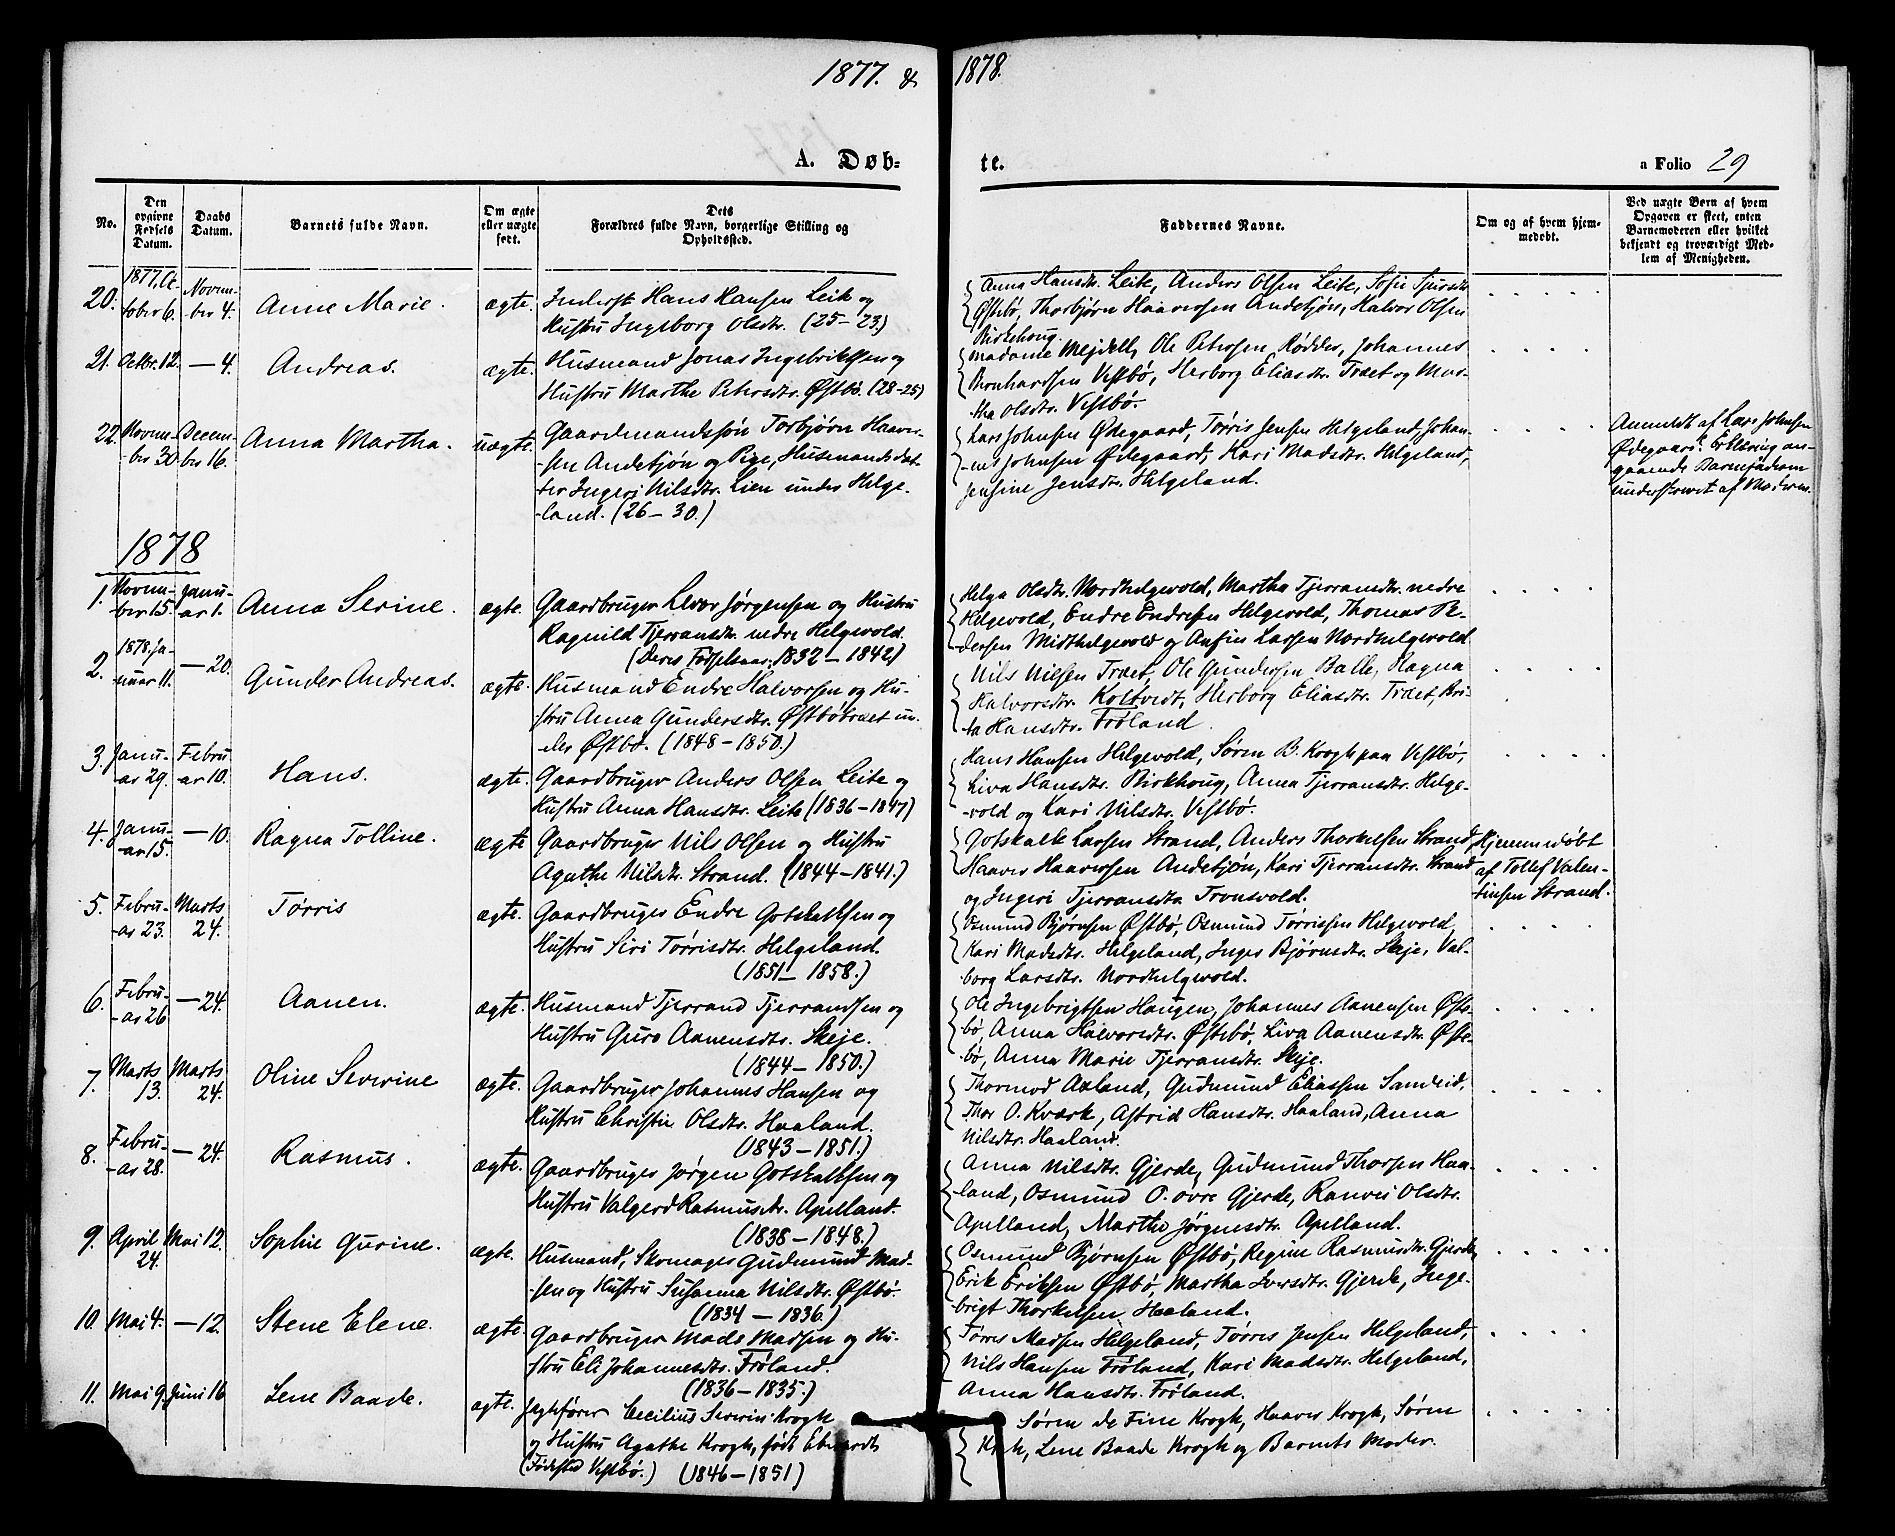 1877. & 1878.
A. Døb= te.
a Folio 29
No.
Den opgivne Fødsels Datum.
Daabs Datum.
Barnets fulde Navn.
Om ægte eller uægte født.
Dets Forældres fulde Navn, borgerlige Stilling og Opholdssted.
Faddernes Navne.
Om og af hvem hjemmedøbt.
Ved uægte Børn af hvem Opgaven er skeet, enten Barnemoderen eller hvilket bekjendt og troværdigt Medlem af Menigheden.
20. 1877. October 6. November 4. Anne Marie. ægte.
Inderst Hans Hansen Leite og
Hustru Ingeborg Olsdtr. (25-23.)
Anna Hansdtr. Leite, Anders Olsen Leite, Sofie Sjursdtr.
Østebø, Thorbjørn Haaversen Andebjøn, Halvor Olsen
Birkehoug.
21. Octbr. 12. — 4. Andreas. ægte.
Husmand Jonas Ingebriktsen og
Hustru Marthe Petersdtr. Østbø. (28-25)
Madame Mejdell, Ole Petersen Rødder, Johannes
Bernhardsen Vestbø, Herborg Eliasdtr. Træet og Mar-
tha Olsdtr. Vestbø.
22. November 30 December 16. Anna Martha. uægte.
Gaardmandssøn Torbjørn Haaver-
-sen Andebjøn og Pige, Husmandsdat-
ter Ingeri Nilsdtr. Lien under Helge-
-land. (26-30.)
Lars Johnsen Ødegaard, Tørris Jensen Helgeland, Johan-
-nes Johnsen Ødegaard, Kari Madsdtr. Helgeland,
Jensine Jensdtr. Helgeland.
Anmeldt af Lars Johnsen
Ødegaard. Erklæring an-
gaaende Barnefadren
underskrevet af Moderen.
1878
1. November 15. Januar 1. Anna Serine. ægte.
Gaardbruger Iver Jørgensen og Hustru
Ragnild Tjerransdtr. nedre Helgevold.
(Deres Fødselsaar: 1832-1842)
Helga Olsdtr. Nordhelgevold, Martha Tjerrandtr. nedre
Helgevold, Endre Endresen Helgevold, Thomas Pe-
dersen Midthelgevold og Anfin Larsen Nordhelgevold
2. 1878. Januar 11. — 20. Gunder Andreas. ægte.
Husmand Endre Halvorsen og Hu-
stru Anna Gundersdtr. Østbøtraet un-
der Østbø. (1848-1850.)
Nils Nilsen Træet, Ole Gundersen Balle, Ragna
Halvorsdtr. Koltvedt, Herborg Eliasdtr. Træet, Bri-
ta Hansdtr. Frøland.
3. Januar 29. Februar 10. Hans. ægte.
Gaardbruger Anders Olsen Leite og
Hustru Anna Hansdtr. Leite (1836-1847)
Hans Hansen Helgevold, Søren B. Krogh paa Vestbø,
Liva Hansdtr. Birkhoug, Anna Tjerransdtr. Helge-
-vold og Kari Nilsdtr. Vestbø.
4. Januar 15. — 10. Ragna Tolline. ægte
Gaardbruger Nils Olsen og Hustru
Agathe Nilsdtr. Strand. (1844-1841.)
Gotskalk Larsen Strand, Anders Thorkelsen Strand,
Haaver Haaversen Andebjøn, Kari Tjerransdtr. Strand
og Ingeri Tjerransdtr. Tronsvold.
Hjemmedøbt
af Tollef Valen-
tinsen Strand.
5. Februar 23. Marts 24. Tørris ægte.
Gaardbruger Endre Gotskalksen og
Hustru Siri Tørrisdtr. Helgeland.
(1851-1858.)
Osmund Bjørnsen Østbø, Osmund Tørrissen Helgevold,
Kari Madsdtr. Helgeland, Inger Bjørnsdtr. Skeje, Val-
borg Larsdtr. Nordhelgevold.
6. Februar 26 — 24. Aanen. ægte.
Husmand Tjerrand Tjerrandsen og
Hustru Guro Aanensdtr. Skeje.
(1844-1850.)
Ole Ingebrigtsen Haugen, Johannes Aanensen Øste-
bø, Anna Halvorsdtr. Østebø, Liva Aanensdtr. Øste-
bø, Anna Marie Tjerransdtr. Skeje.
7. Marts 13. Marts 24. Oline Severine ægte.
Gaardbruger Johannes Hansen og
Hustru Christie Olsdtr. Haaland.
(1843-1851.)
Thormod Axland, Gudmund Eliassen Sandeid,
Thor O. Kværk, Astrid Hansdtr. Haaland, Anna
Nilsdtr. Haaland.
8. Februar 28. — 24. Rasmus. ægte.
Gaardbruger Jørgen Gotskalksen og
Hustru Valgerd Rasmusdtr. Apelland.
(1838-1848.)
Anna Nilsdtr. Gjerde, Gudmund Thorsen Haa-
land, Osmund O. øvre Gjerde, Ranvei Olsdtr.
Apelland, Marthe Jørgensdtr. Apelland.
9. April 24. Mai 12. Sophie Gurine. ægte.
Husmand, Skomager Gudmund Mad-
-sen og Hustru Susanna Nilsdtr. Østbø.
(1834-1836.)
Osmund Bjørnsen Østbø, Regine Rasmusdtr. Gjerde,
Erik Eriksen Østbø, Martha Iversdtr. Gjerde, Inge-
brigt Thorkelsen Haaland.
10. Mai 4. — 12. Stene Elene. ægte.
Gaardbruger Mads Madsen og Hu-
stru Eli Johannesdtr. Frøland.
(1836-1835.)
Tørres Madsen Helgeland, Tørres Jensen Helgeland,
Nils Hansen Frøland, Kari Madsdtr. Helgeland,
Anna Hansdtr. Frøland.
11. Mai 9. Juni 16 Lene Baade. ægte.
Jægtefører Cecilius Severin Krogh
og Hustru Agathe Krogh, født
(Fødested Vestbø.) (1846-1851)
Søren de Fine Krogh, Haaver Krogh, Søren
Krogh, Lene Baade Krogh og Barnets Moder.